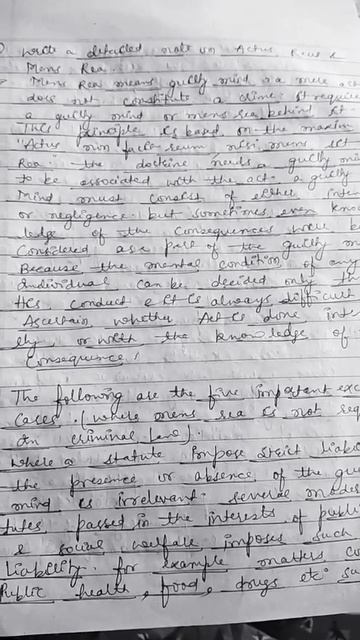 Write a detailed note on Actus Reus &
Mens Rea.
Mens Rea means guilty mind a mere act
does not constitute a crime. It require
a guilty mind or mens rea behind it
This principle is based on the maxim
"Actus non facit reum nisi mens sit
Rea" the doctrine needs a guilty
to be associated with the act. a guilty
Mind must consist of either inte
or negligence but sometimes even know
ledge of the Consequences
Considered as a part of the guilty m
Because the mental condition of any
individual can be decided only th
his conduct & it is always difficult
Ascertain whether Act is done inte
ly, or with the knowledge of
Consequence!
The following are the five important exc
Cases. (where mens rea is not req
in criminal law).
where a statute Impose strict liabi
the presence or absence of the gu
mind is irrelevant. several
tutes passed in the interests of publi
& social welfare imposes such
Liability. for example matters co
Public health, food, drugs etc. su